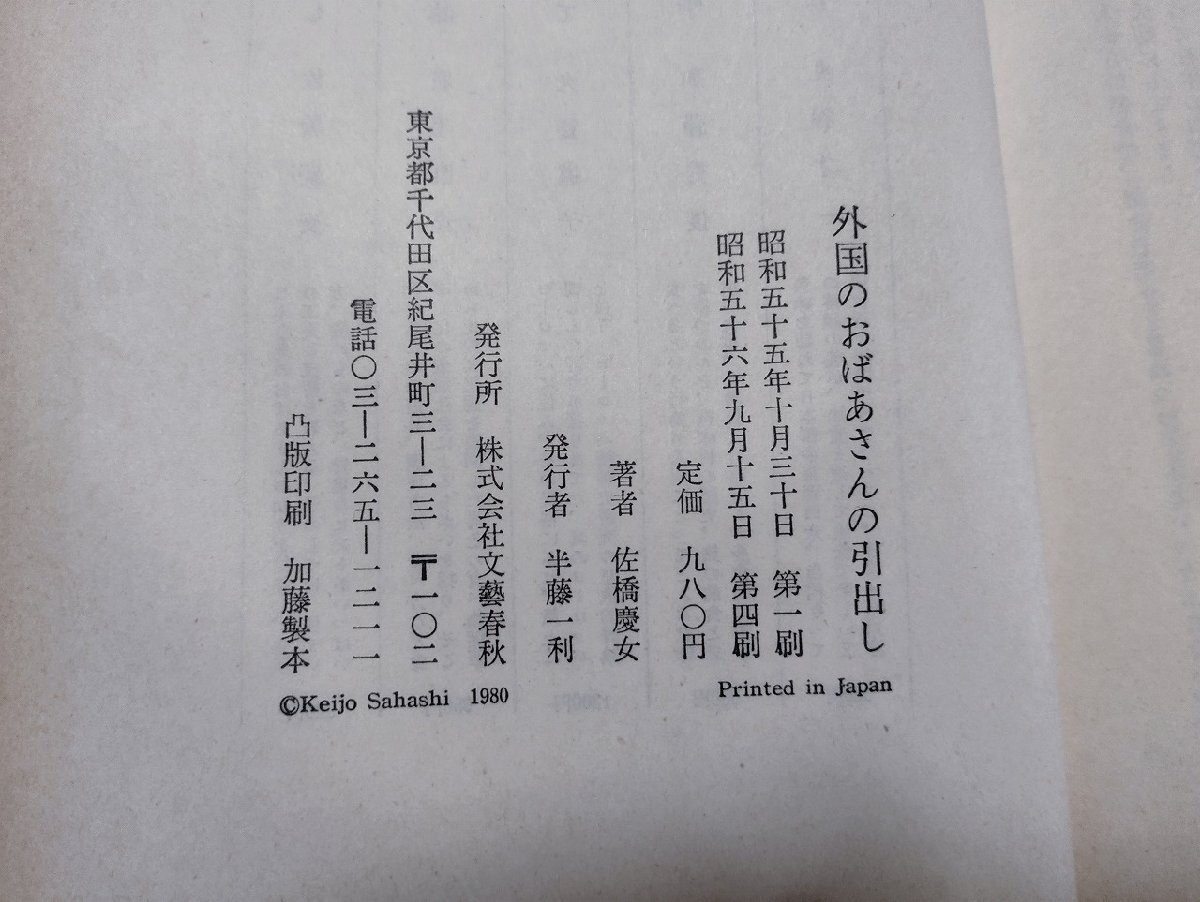 外国のおばあさんの引出し
昭和五十五年十月三十日　第一刷
昭和五十六年九月十五日　第四刷
定価　九八〇円
著者　佐橋慶女
発行者　半藤一利
発行所　株式会社文藝春秋
東京都千代田区紀尾井町三―二三　〒一〇二
電話〇三―二六五―一二一一
凸版印刷　加藤製本
Printed in Japan
©Keijo Sahashi 1980